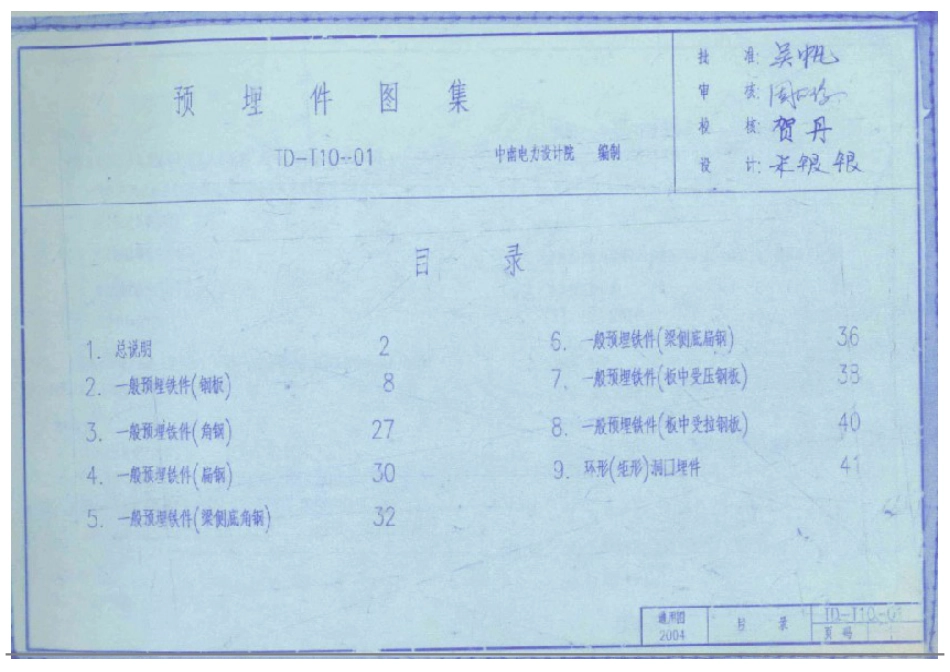 预埋件图集
TD-T10-01
中南电力设计院 编制
批 准: 吴帆
审 核:
校 核: 贺丹
设 计: 银银
目 录
1. 总说明 2
2. 一般预埋铁件(钢板) 8
3. 一般预埋铁件(角钢) 27
4. 一般预埋铁件(扁钢) 30
5. 一般预埋铁件(梁侧底角钢) 32
6. 一般预埋铁件(梁侧底扁钢) 36
7. 一般预埋铁件(板中受压钢板) 38
8. 一般预埋铁件(板中受拉钢板) 40
9. 环形(矩形)洞口埋件 41
通用图
2004
目 录
TD-T10-01
页 号